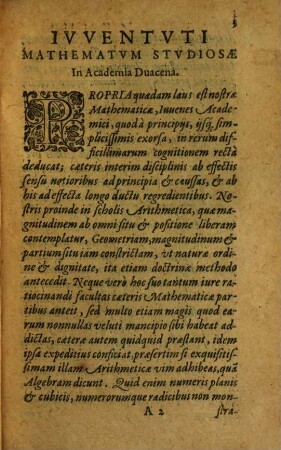 3
IVVENTVTI
MATHEMATVM STVDIOSÆ
In Academia Duacena.
PROPRIA quædam laus est nostræ
Mathematicæ, Iuuenes Acade-
mici, quod à principijs, ijsq́; sim-
plicissimis exorsa, in rerum dif-
ficillimarum cognitionem rectà
deducat; cæteris interim disciplinis ab effectis
sensu notioribus ad principia & caussas, & ab
his ad effecta longo ductu regredientibus. No-
stris proinde in scholis Arithmetica, quæ ma-
gnitudinem ab omni situ & positione liberam
contemplatur, Geometriam, magnitudinum &
partium situ iam constrictam, vt naturæ ordi-
ne & dignitate, ita etiam doctrinæ methodo
antecedit. Neque verò hoc suo tantum iure ra-
tiocinandi facultas cæteris Mathematicæ par-
tibus anteit, sed multo etiam magis quod ea-
rum nonnullas veluti mancipio sibi habeat ad-
dictas, cæteræ autem quidquid præstant, idem
ipsa expeditius conficiat, præsertim si exquisitis-
simam illam Arithmeticæ vim adhibeas, quā
Algebram dicunt. Quid enim numeris planis
& cubicis, numerorumque radicibus non mon-
A 2 stra-